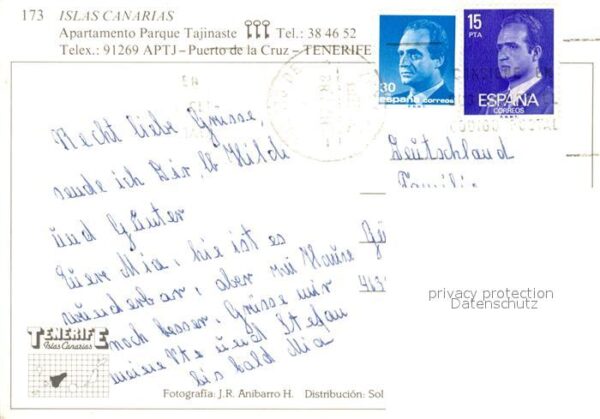 173 ISLAS CANARIAS
Apartamento Parque Tajinaste Tel.: 38 46 52
Telex.: 91269 APTJ - Puerto de la Cruz - TENERIFE
30
españa correos
15
PTA
ESPAÑA
CORREOS
Recht liebe Grüsse,
sende ich Dir, lb Hilde
und Günter
Euer Mia, hie ist es
wunderbar, aber zu Hause
noch besser. Grüsse mir
und Stefan
bis bald Mia
Deutschland
Familie
463
privacy protection
Datenschutz
TENERIFE
Islas Canarias
Fotografía: J.R. Anibarro H. Distribución: Sol